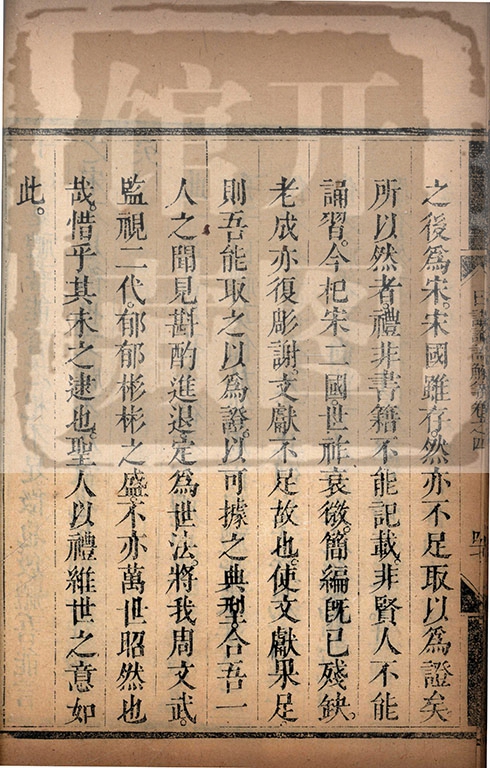 之後爲宋。宋國雖存然亦不足取以爲證矣
所以然者禮非書籍不能記載。非賢人不能
誦習。今杞宋二國世祚衰微。簡編旣已殘缺。
老成亦復彫謝。文獻不足故也。使文獻果足
則吾能取之以爲證。以可據之典型合吾一
人之聞見斟酌進退定爲世法。將我周文武。
監視二代。郁郁彬彬之盛。不亦萬世昭然也
哉。惜乎其未之逮也。聖人以禮維世之意如
此。